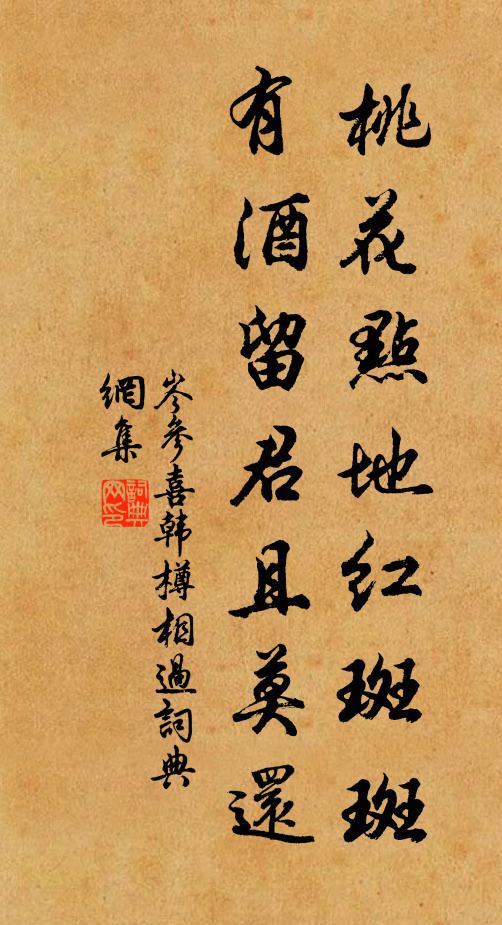 桃花點地紅斑斑
有酒留君且莫還
岑參喜韩樽相過詞典
網集
詞典
网印